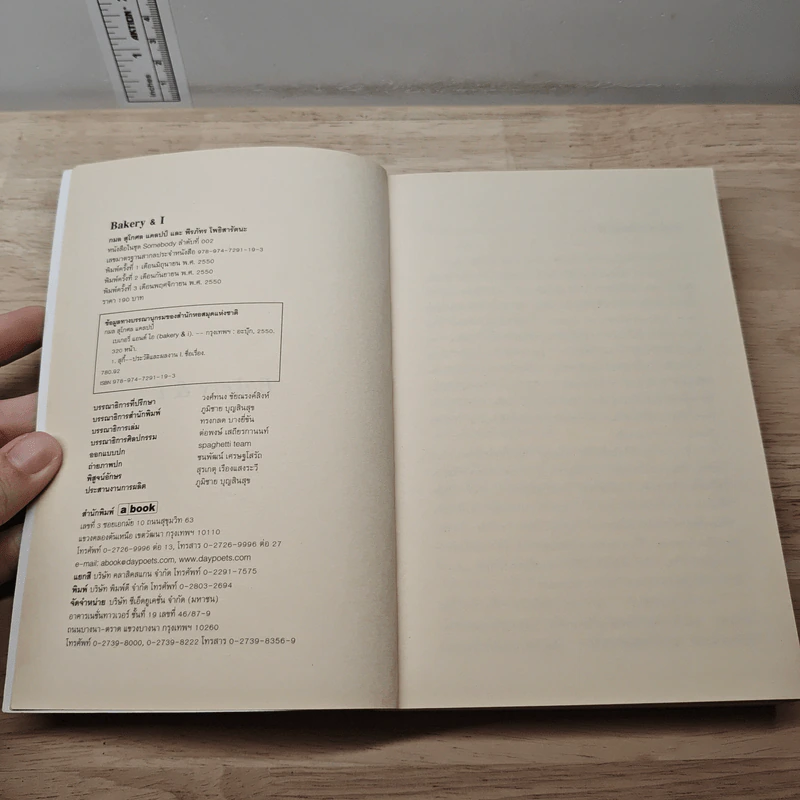 Bakery & I
กมล สุโกศล แคลปป์ และ พีรภัทร โพธิสารัตนะ
หนังสือในชุด Somebody ลำดับที่ 002
เลขมาตรฐานสากลประจำหนังสือ 978-974-7291-19-3
พิมพ์ครั้งที่ 1 เดือนมิถุนายน พ.ศ. 2550
พิมพ์ครั้งที่ 2 เดือนกันยายน พ.ศ. 2550
พิมพ์ครั้งที่ 3 เดือนพฤศจิกายน พ.ศ. 2550
ราคา 190 บาท
ข้อมูลทางบรรณานุกรมของสำนักหอสมุดแห่งชาติ
กมล สุโกศล แคลปป์
เบเกอรี่ แอนด์ ไอ (bakery & i). -- กรุงเทพฯ : อะบุ๊ก, 2550.
320 หน้า.
1. สุกี้--ประวัติและผลงาน I. ชื่อเรื่อง.
780.92
ISBN 978-974-7291-19-3
บรรณาธิการที่ปรึกษา วงศ์ทนง ชัยณรงค์สิงห์
บรรณาธิการสำนักพิมพ์ ภูมิชาย บุญสินสุข
บรรณาธิการเล่ม ทรงกลด บางยี่ขัน
บรรณาธิการศิลปกรรม ต่อพงษ์ เสถียรกานนท์
ออกแบบปก spaghetti team
ถ่ายภาพปก ชนพัฒน์ เศรษฐโสรัถ
พิสูจน์อักษร สุรเกตุ เรืองแสงระวี
ประสานงานการผลิต ภูมิชาย บุญสินสุข
สำนักพิมพ์ a book
เลขที่ 3 ซอยเอกมัย 10 ถนนสุขุมวิท 63
แขวงคลองตันเหนือ เขตวัฒนา กรุงเทพฯ 10110
โทรศัพท์ 0-2726-9996 ต่อ 13, โทรสาร 0-2726-9996 ต่อ 27
e-mail: abook@daypoets.com, www.daypoets.com
แยกสี บริษัท คลาสิคสแกน จำกัด โทรศัพท์ 0-2291-7575
พิมพ์ บริษัท พิมพ์ดี จำกัด โทรศัพท์ 0-2803-2694
จัดจำหน่าย บริษัท ซีเอ็ดยูเคชั่น จำกัด (มหาชน)
อาคารเนชั่นทาวเวอร์ ชั้นที่ 19 เลขที่ 46/87-9
ถนนบางนา-ตราด แขวงบางนา กรุงเทพฯ 10260
โทรศัพท์ 0-2739-8000, 0-2739-8222 โทรสาร 0-2739-8356-9